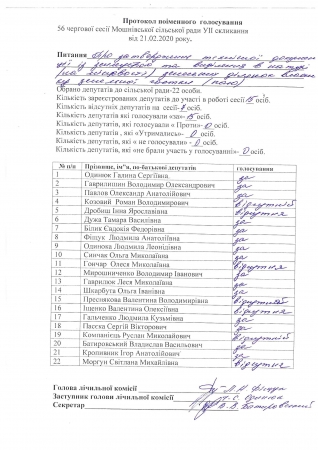 Протокол поіменного голосування
56 чергової сесії Мошнівської сільської ради УІІ скликання
від 21.02.2020 року.
Питання Про затвердження технічної
Обрано депутатів до сільської ради-22 особи.
Кількість зареєстрованих депутатів до участі в роботі сесії 15 осіб.
Кількість відсутніх депутатів на сесії- осіб.
Кількість депутатів, які голосували «за» 15 осіб
Кількість депутатів, які голосували « Проти»- 0 осіб
Кількість депутатів , які «Утримались»- 0 осіб
Кількість депутатів, які « не голосували» - 0 осіб.
Кількість депутатів, які «не брали участь у голосуванні»- 0 осіб.
№ п/п Прізвище, ім"я, по-батькові депутатів голосування
1 Одинюк Галина Сергіївна за
2 Гаврилишин Володимир Олександрович за
3 Павлов Олександр Анатолійович за
4 Козовий Роман Володимирович відсутній
5 Дробиш Інна Ярославівна відсутня
6 Дужа Тамара Василівна за
7 Білик Євдокія Федорівна за
8 Фіщук Людмила Анатоліївна за
9 Одинока Людмила Леонідівна за
10 Синчак Ольга Миколаївна за
11 Гончар Олеся Миколаївна відсутня
12 Мирошниченко Володимир Іванович за
13 Гаврилюк Леся Миколаївна за
14 Шкарбута Ольга Іванівна за
15 Преслякова Валентина Володимирівна відсутній
16 Іщенко Валентина Олексіївна відсутня
17 Гальченко Людмила Кузьмівна за
18 Пасєка Сергій Вікторович за
19 Компанієць Руслан Миколайович відсутній
20 Багировський Владислав Васильович за
21 Кропивник Ігор Анатолійович за
22 Моргун Світлана Михайлівна відсутня
Голова лічильної комісії Л.А. Фіщук
Заступник голови лічильної комісії
Секретар В.В.